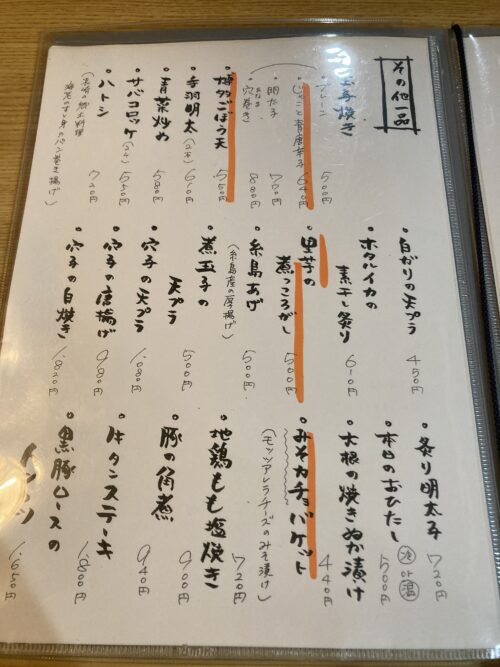 その他一品
玉子焼き
プレーン 500円
じゃこと青唐辛子 640円
明太子 700円
穴巻き 880円
・博多ごぼう天 550円
・手羽明太(2本) 610円
・青菜炒め 580円
・サバコロッケ(2ケ) 550円
・ハトシ 720円
(長崎の郷土料理
海老のすり身のパン巻き揚げ)
・白がりの天プラ 450円
・ホタルイカの
素干し炙り 610円
・里芋の
煮っころがし 500円
・糸島あげ
(糸島産の厚揚げ) 500円
・煮玉子の
天プラ 500円
・穴子の天プラ 1,080円
・穴子の唐揚げ 980円
・穴子の白焼き 1,820円
・炙り明太子 720円
・本日のおひたし 冷or温 500円
・大根の焼きぬか漬け 440円
・みそカチョバケット
(モッツアレラチーズのみそ漬け) 720円
・地鶏もも塩焼き 900円
・豚の角煮 940円
・牛タンステーキ 1,800円
・黒豚ロースの
1,650円